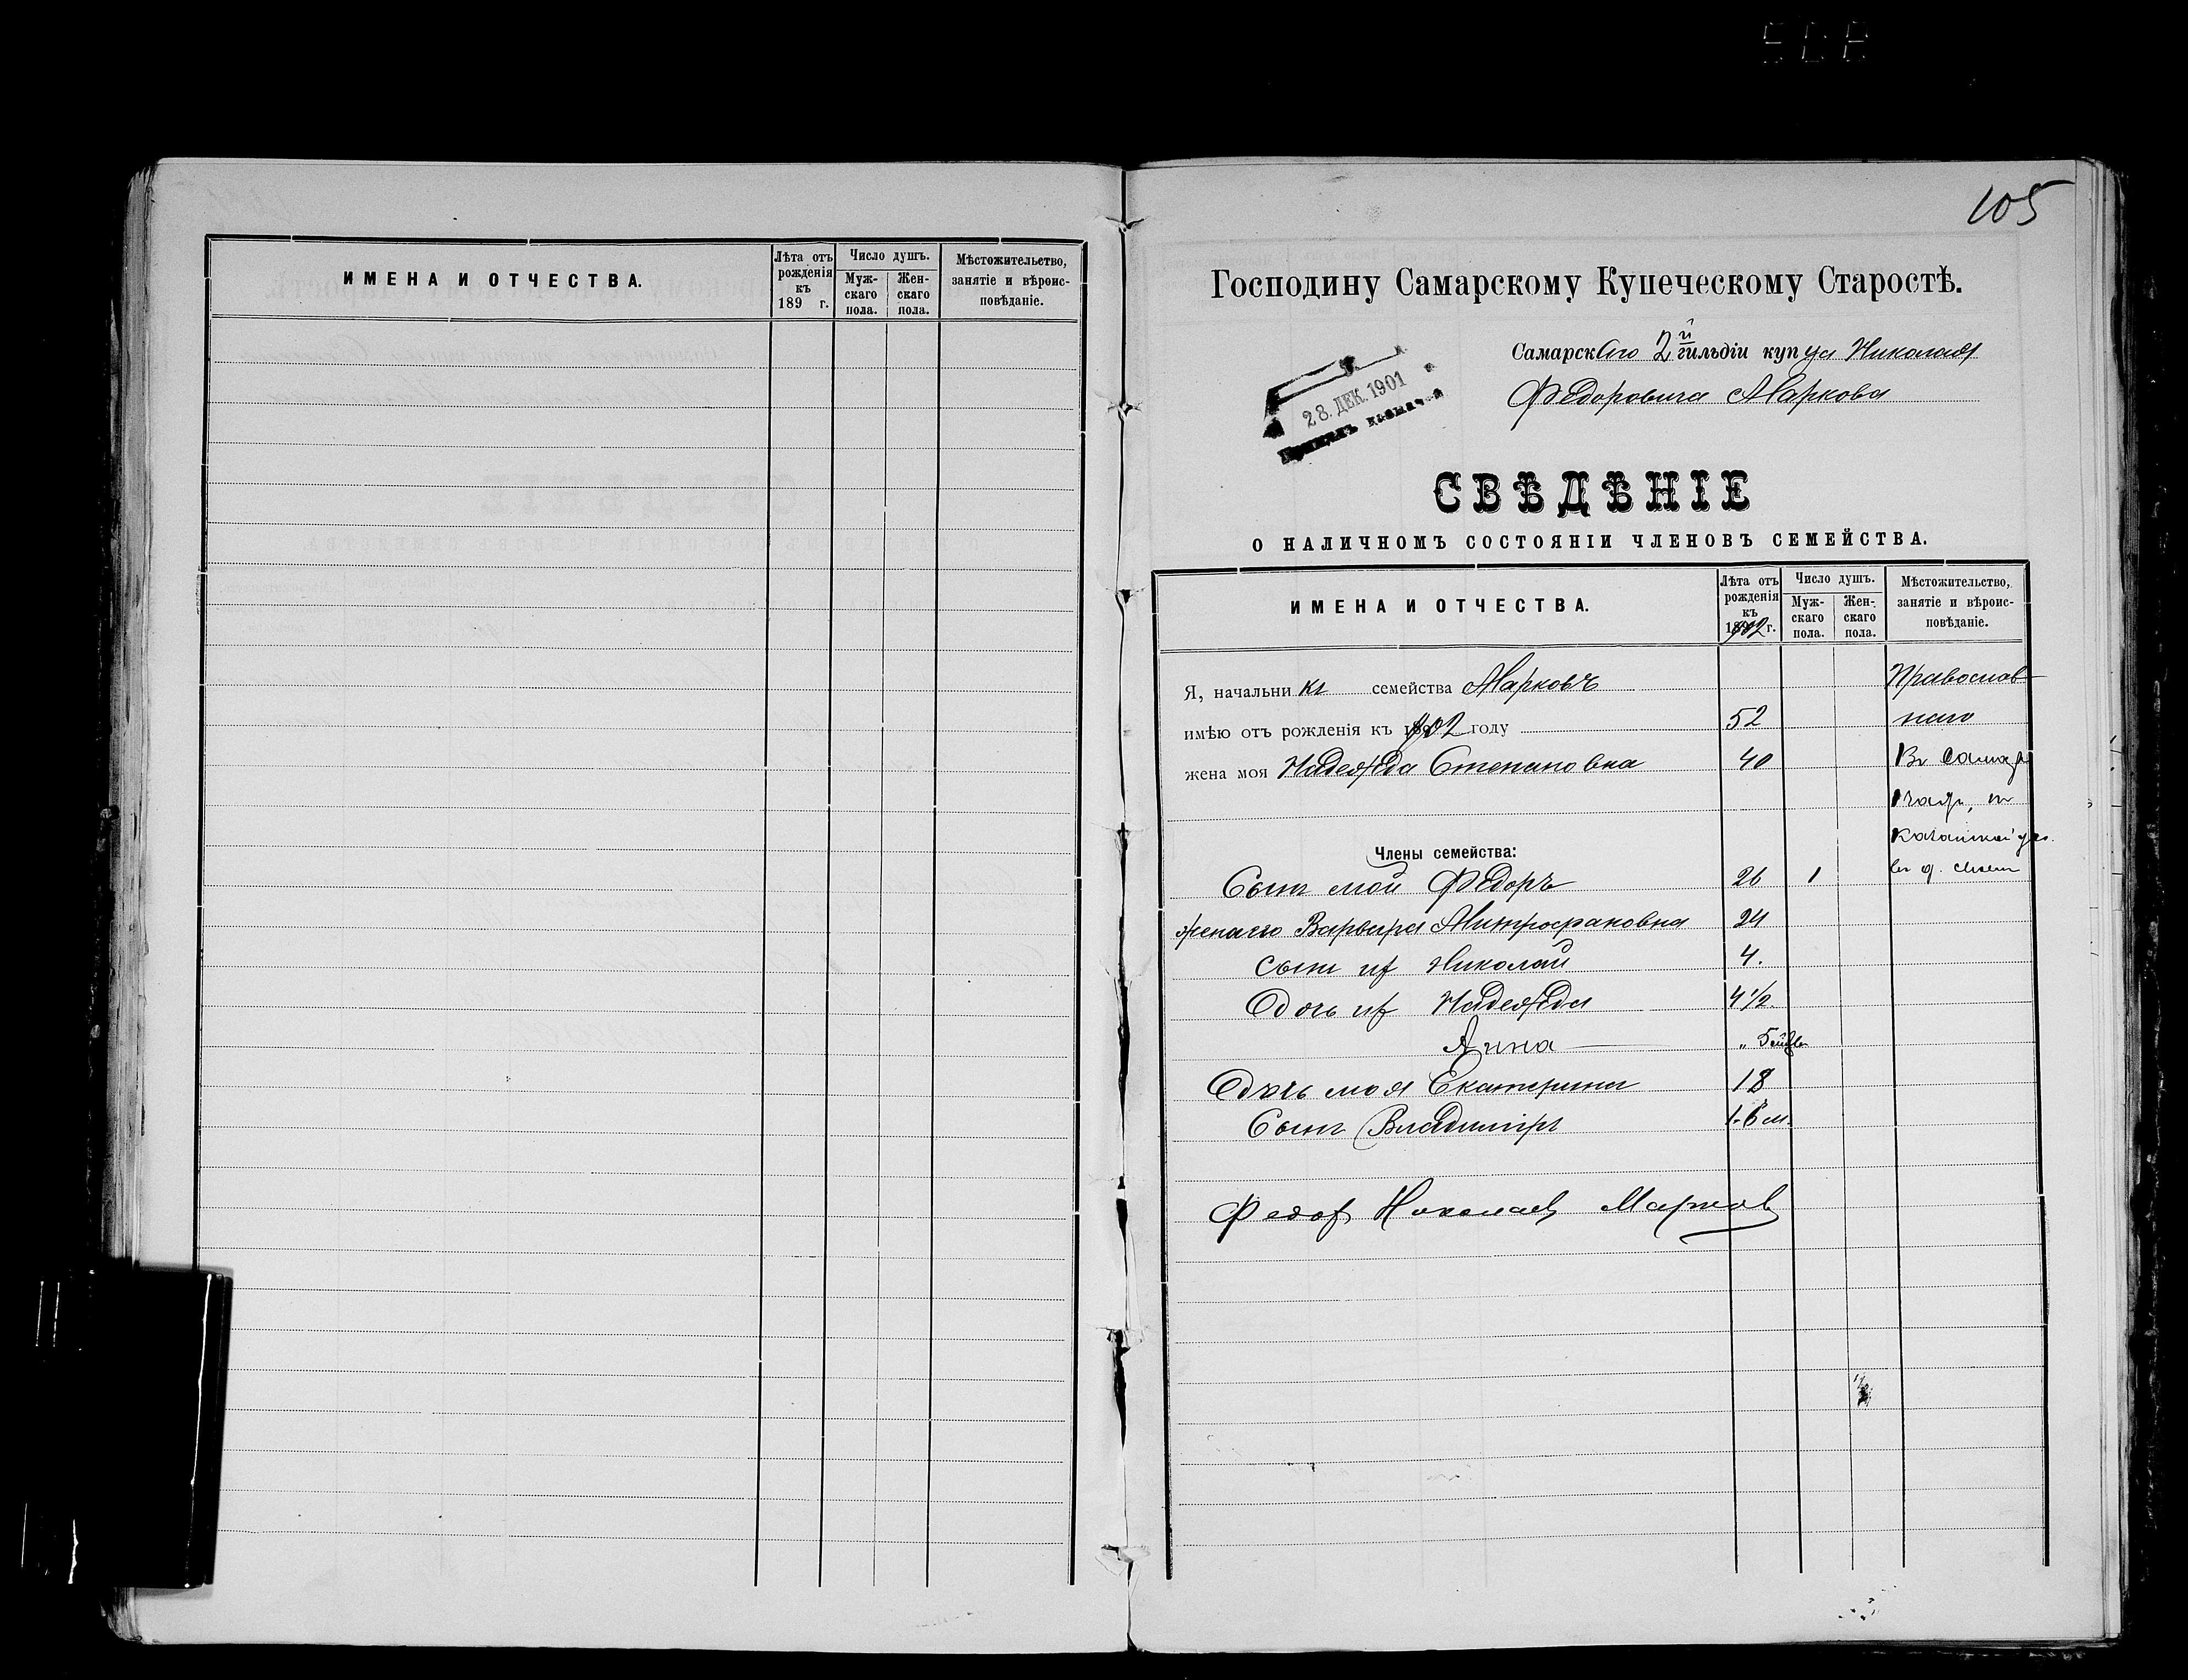 ИМЕНА И ОТЧЕСТВА.
Лѣта отъ рожденія къ 189 г.
Число душъ.
Мужскаго пола.
Женскаго пола.
Мѣстожительство, занятіе и вѣроисповѣданіе.
105
Господину Самарскому Купеческому Старостѣ.
Самарскаго 2й гильдіи купца Николая
Федоровича Маркова
28. ДЕК. 1901
СВѢДѢНІЕ
О НАЛИЧНОМЪ СОСТОЯНІИ ЧЛЕНОВЪ СЕМЕЙСТВА.
ИМЕНА И ОТЧЕСТВА.
Лѣта отъ рожденія къ 1902 г.
Число душъ.
Мужскаго пола.
Женскаго пола.
Мѣстожительство, занятіе и вѣроисповѣданіе.
Я, начальникъ семейства Марковъ Православ
имѣю отъ рожденія къ 1902 году 52 наго
жена моя Надежда Степановна 40 Въ
Члены семейства:
Сынъ мой Федоръ 26 1
жена его Варвара Митрофановна 24
сынъ их Николай 4.
Дочь их Надежда 4 1/2.
Анна
Дочь моя Екатерина 18
Сынъ Владиміръ 1. 6 м.
Федор Николаев Марков